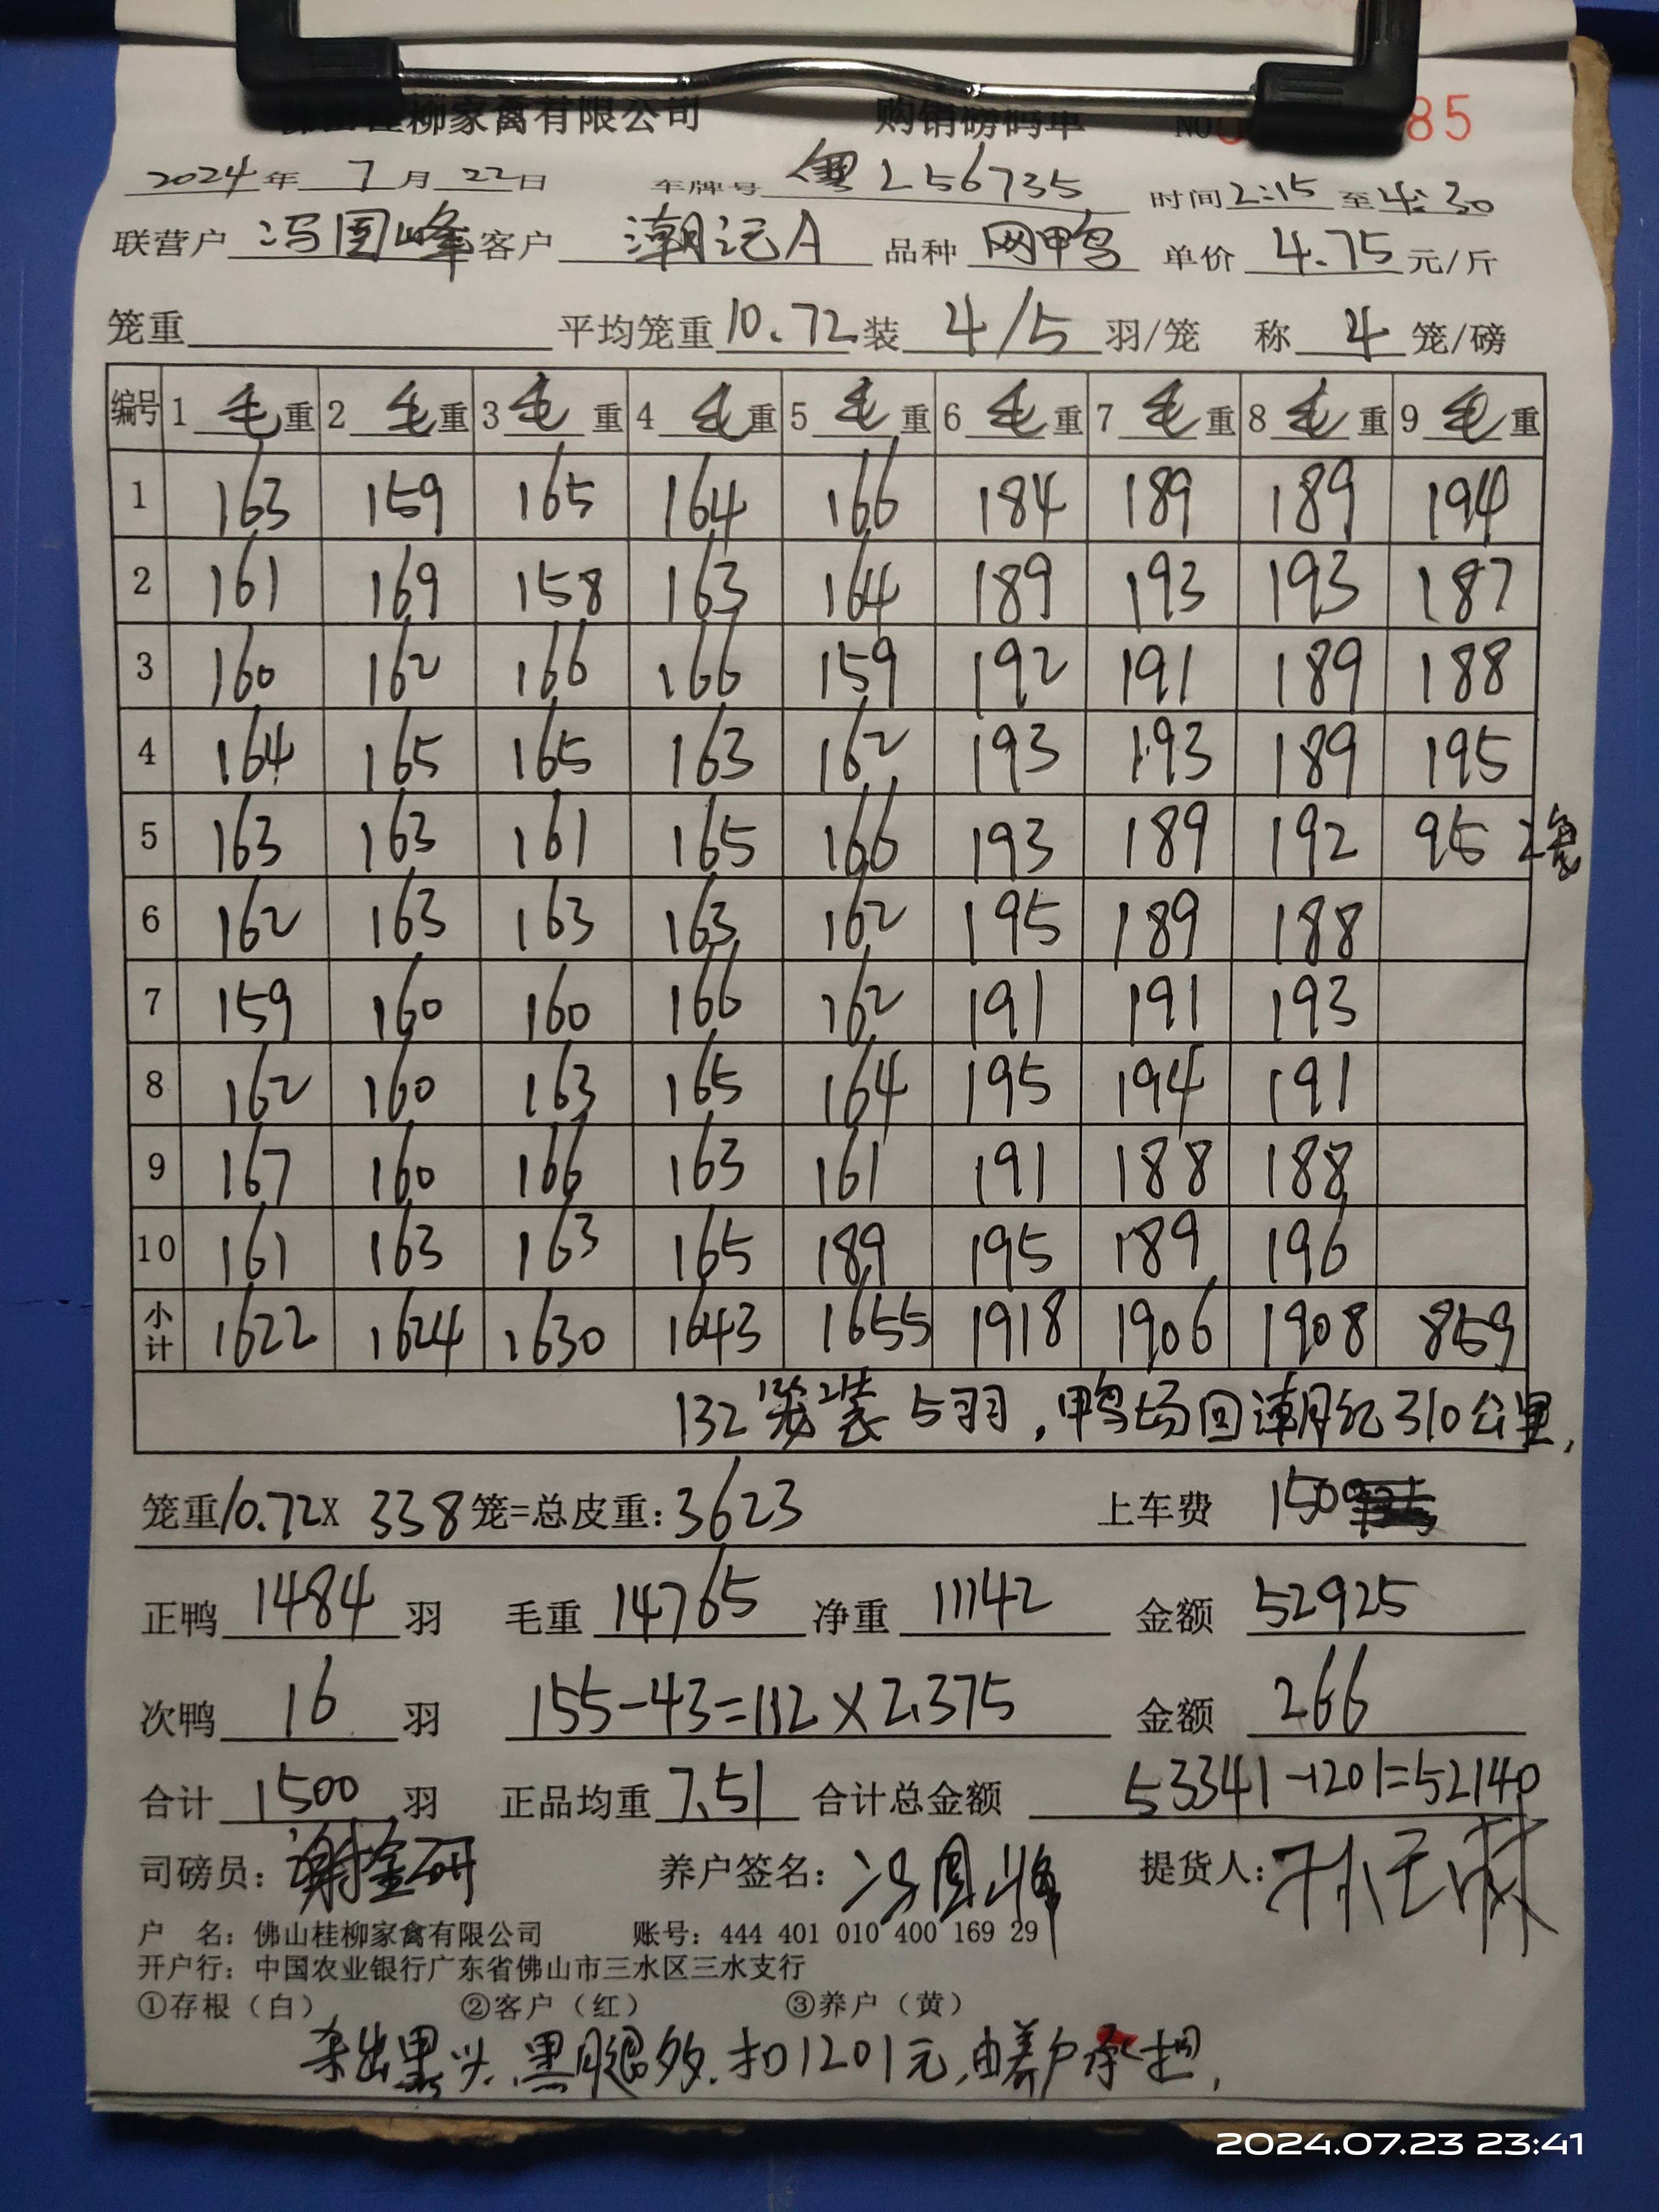 佛山桂柳家禽有限公司 购销磅码单 NO 85
2024年 7月 22日 车牌号 粤L56735 时间 2:15 至 4:30
联营户 冯国峰 客户 潮记A 品种 网鸭 单价 4.75 元/斤
笼重 平均笼重 10.72 装 4/5 羽/笼 称 4 笼/磅
编号 1 毛重 2 毛重 3 毛重 4 毛重 5 毛重 6 毛重 7 毛重 8 毛重 9 毛重
1 163 159 165 164 166 184 189 189 194
2 161 169 158 163 164 189 193 193 187
3 160 162 166 166 159 192 191 189 188
4 164 165 165 163 162 193 193 189 195
5 163 163 161 165 166 193 189 192 95 2笼
6 162 163 163 163 162 195 189 188
7 159 160 160 166 162 191 191 193
8 162 160 163 165 164 195 194 191
9 167 160 166 163 161 191 188 188
10 161 163 163 165 189 195 189 196
小计 1622 1624 1630 1643 1655 1918 1906 1908 859
132笼装5羽,鸭场回潮记310公里,
笼重10.72X 338笼=总皮重:3623 上车费 150
正鸭 1484 羽 毛重 14765 净重 11142 金额 52925
次鸭 16 羽 155-43=112×2.375 金额 266
合计 1500 羽 正品均重 7.51 合计总金额 53341-1201=52140
司磅员: 谢金研 养户签名: 冯国峰 提货人:
户 名: 佛山桂柳家禽有限公司 账号: 444 401 010 400 169 29
开户行: 中国农业银行广东省佛山市三水区三水支行
①存根(白) ②客户(红) ③养户(黄)
杂出黑头.黑腿多.扣1201元,由养户承担,
2024.07.23 23:41